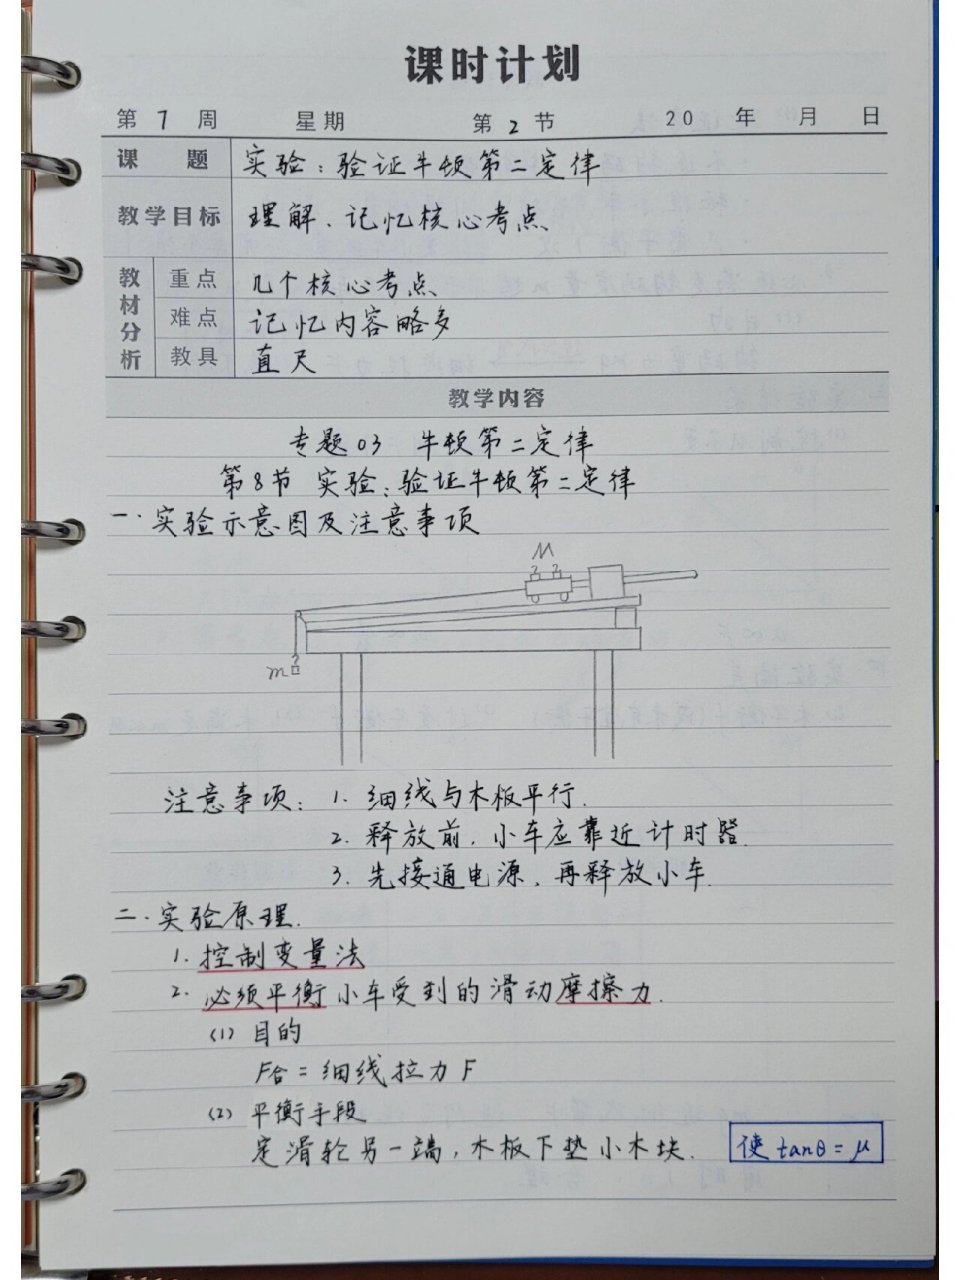 课时计划
第 7 周 星期 第 2 节 20 年 月 日
课 题 实验：验证牛顿第二定律
教学目标 理解、记忆核心考点
教材分析 重点 几个核心考点
难点 记忆内容略多
教具 直尺
教学内容
专题03 牛顿第二定律
第8节 实验：验证牛顿第二定律
一.实验示意图及注意事项
M
m
注意事项：1. 细线与木板平行.
2. 释放前，小车应靠近计时器.
3. 先接通电源，再释放小车.
二.实验原理.
1. 控制变量法
2. 必须平衡小车受到的滑动摩擦力.
(1) 目的
F合 = 细线拉力F
(2) 平衡手段
定滑轮另一端，木板下垫小木块. 使 tanθ = μ